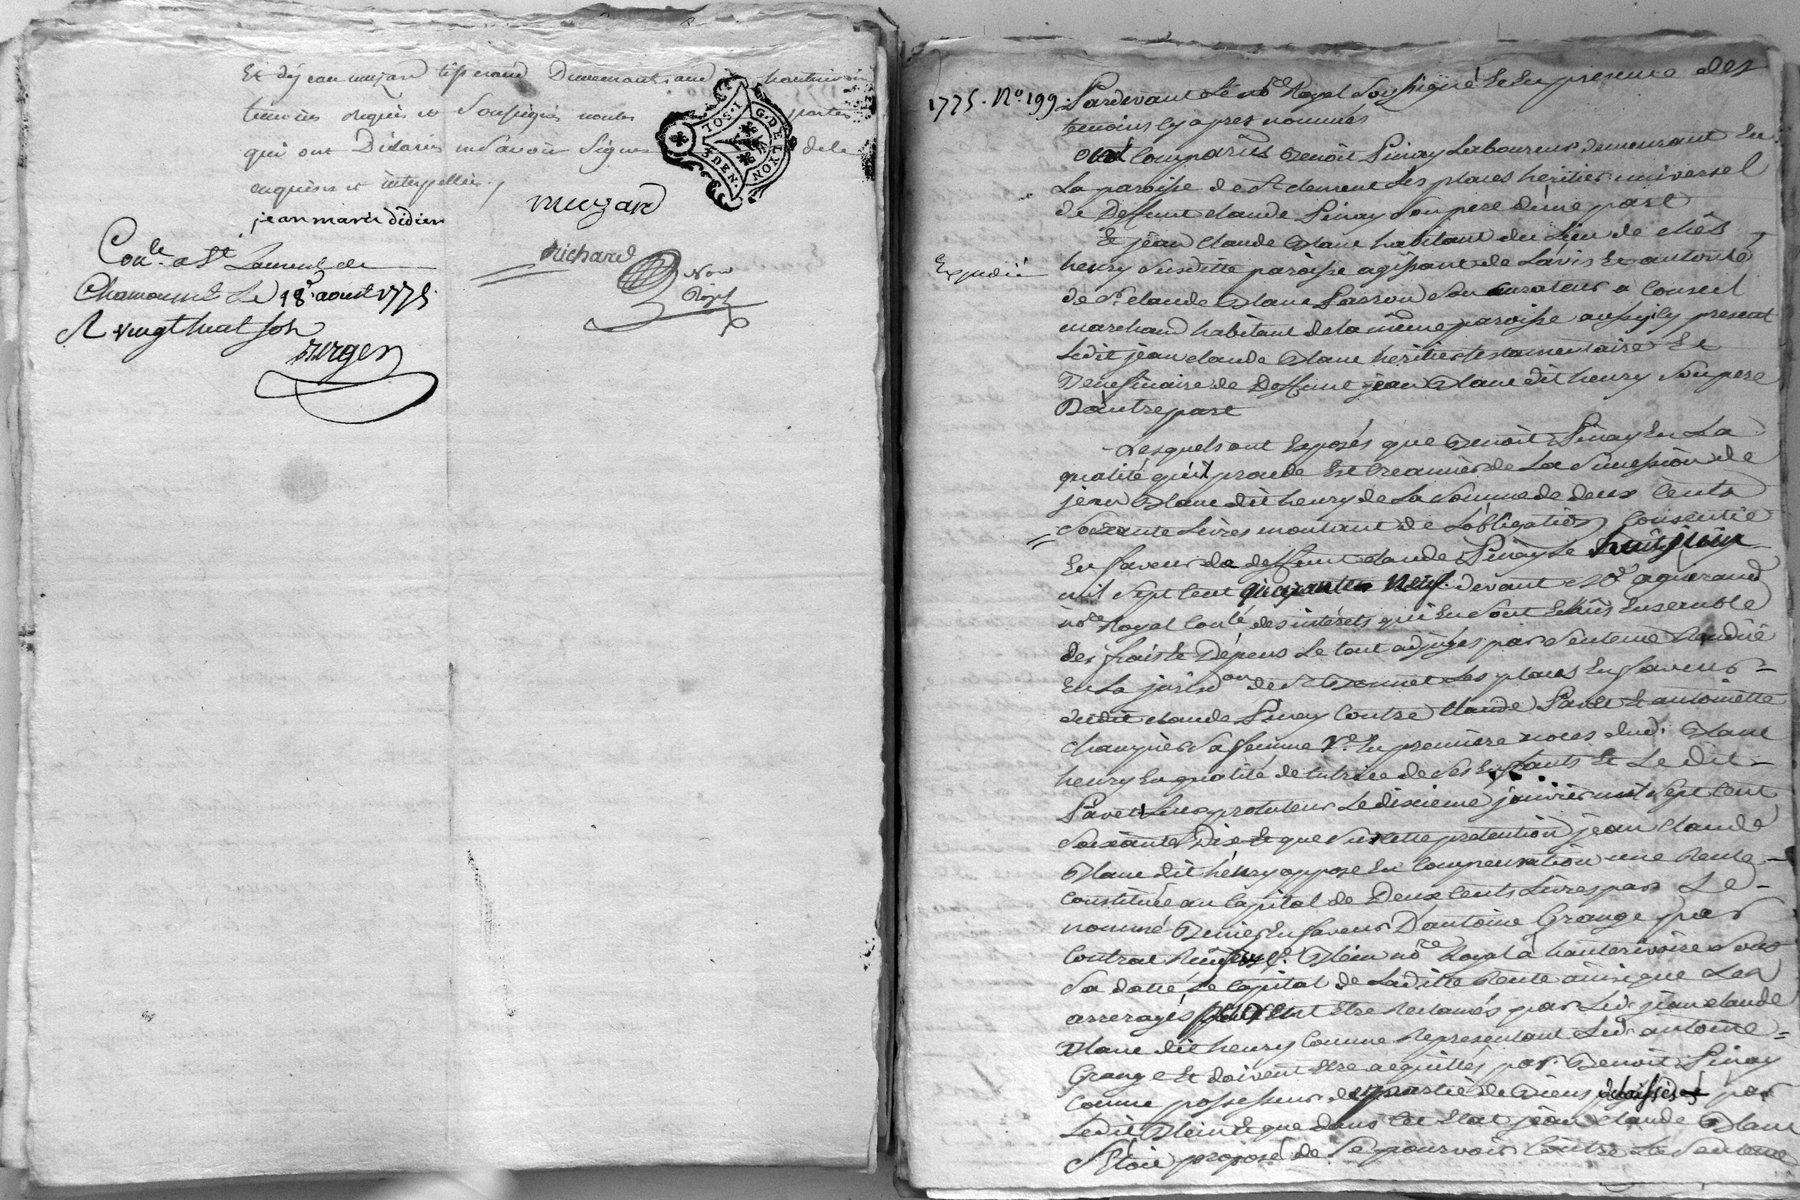 Et de jean muzard tisserand demeurant aud. hauterivoire
temoins requis et soussignés non les parties
qui ont Déclaré ne savoir signer de ce
enquises et interpellées,
jean marie didier
muzard
richard
Not. Royal
Conlé a St Laurent de
Chamousset Le 18 aoust 1775
R vingt huit sols
verger
I.SOL. 3 DEN.
G. DE LYON
1775. No. 199.
Pardevant Le no.re Royal Soussigné Et En presence des
temoins cy apres nommés
Comparûs Benoit Pinay Laboureur demeurant En
La paroisse de St clement Les places heritier universel
de Deffunt claude Pinay son pere d'une part
Et jean claude Blanc habitant du Lieu de chés
henry Susditte paroisse agissant de Lavis Et autorité
Expedié
de Sr. claude Blanc Son curateur a Conseil
marchand habitant de la même paroisse aussy cy present
Ledit jean claude Blanc heritier testamentaire Et
Beneficiaire de Deffunt jean Blanc dit henry Son pere
D'autre part
Lesquels ont Exposés que Benoit Pinay En La
qualité qu'il procede Est Creancier de La Succession de
jean Blanc dit henry de La Somme de deux Cents
Soixante Livres montant de L'obligation Consentie
En faveur de deffunt claude Pinay Le huit juin
mil Sept Cent quarante Neuf devant Me. aguiraud
no.re Royal Conlé des intérêts qui En Sont Echus Ensemble
des frais Et Dépens Le tout adjugés par Sentence Rendue
En La jurid.on de St Bonnet Les places En faveur
dudit claude Pinay Contre claude Pavet Et antoinette
chanprier Sa femme Ve. En premiere noces dud. Blanc
henry En qualité de tutrice de Ses Enfants Et Le dit
Pavet Leur protuteur Le dixieme janvier mil Sept Cent
Soixante Dix Et que Sur cette pretention jean claude
Blanc dit henry oppose En Compensation une Rente
Constituée au Capital de Deux Cents Livres par Le
nommé En faveur D'antoine Grange par
Contrat Reçu Me. Blein no.re Royal à hauterivoire Sous
Sa datte Le Capital de Laditte Rente ainsi que Les
arrerages peuvent Etre Reclamés par Led. jean claude
Blanc dit henry Comme Representant Led. antoine
Grange Et doivent Etre acquittés par Benoit Pinay
Comme possesseur de partie de Biens delaissés par
Ledit Blein Et que dans Cet Etat jean claude Blanc
S'étoit proposé de Se pourvoir Contre La Sentence